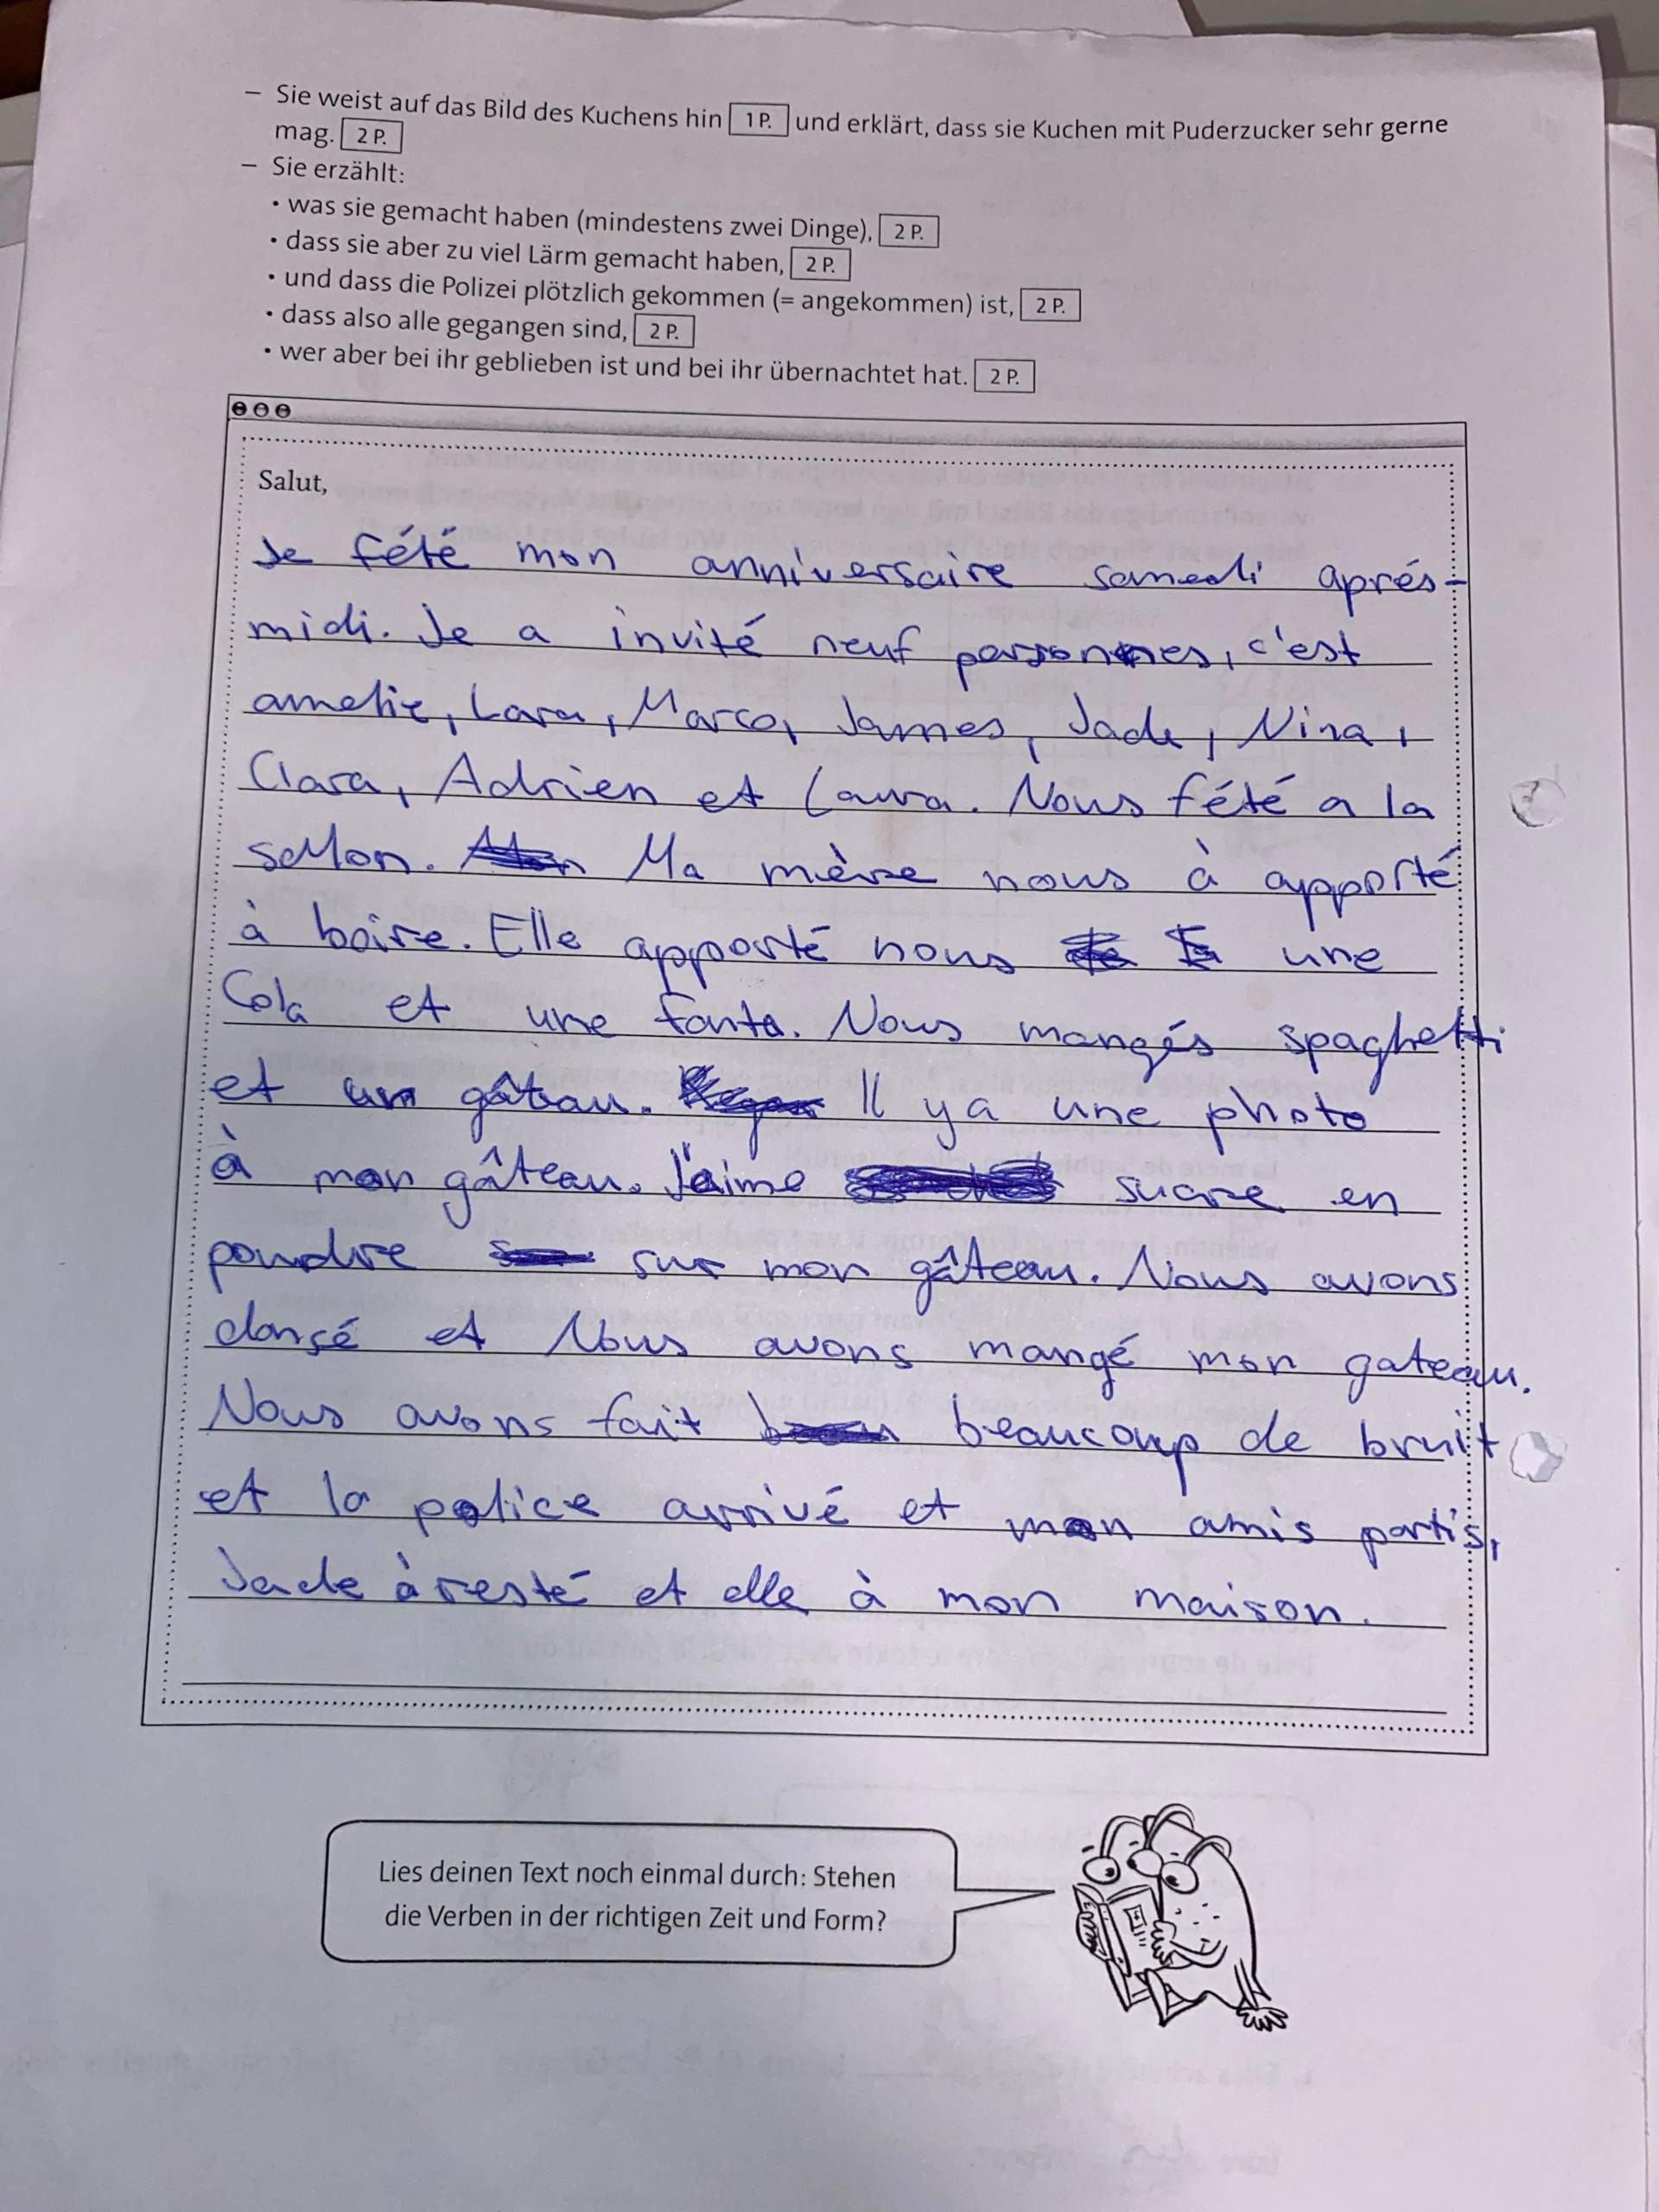 – Sie weist auf das Bild des Kuchens hin 1 P. und erklärt, dass sie Kuchen mit Puderzucker sehr gerne
mag. 2 P.
– Sie erzählt:
• was sie gemacht haben (mindestens zwei Dinge), 2 P.
• dass sie aber zu viel Lärm gemacht haben, 2 P.
• und dass die Polizei plötzlich gekommen (= angekommen) ist, 2 P.
• dass also alle gegangen sind, 2 P.
• wer aber bei ihr geblieben ist und bei ihr übernachtet hat. 2 P.
Salut,
Je fété mon anniversaire samedi aprés-
midi. Je a invité neuf personnes, c'est
amelie, Lara, Marco, James, Jade, Nina,
Clara, Adrien et Laura. Nous fété a la
sallon. Ma mère nous à apporté
à boire. Elle apporté nous une
Cola et une fanta. Nous mangés spaghetti
et un gâteau. Il y a une photo
à mon gâteau. J'aime sucre en
poudre sur mon gâteau. Nous avons
dansé et Nous avons mangé mon gateau.
Nous avons fait beaucoup de bruit
et la police arrivé et mon amis partis,
Jade à resté et elle à mon maison.
Lies deinen Text noch einmal durch: Stehen
die Verben in der richtigen Zeit und Form?